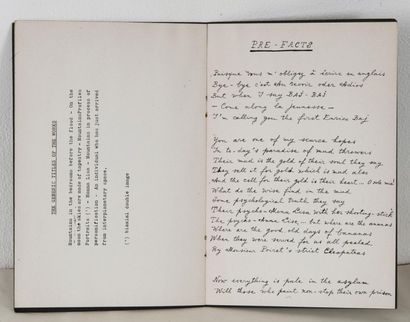 THE GENERIC TITLES OF THE WORKS
Mountains in the bedrooms before the flood - On the
moon the skies are made of tapestry - Mountains/Profiles
Portraits (*) - Woman line - Mountains in process of
personification - An individual who has just arrived
from interplanetary space.
(*) biaxial double image
PRE-FACTS
Puisque vous m'obligez à écrire en anglais
Bye-bye c'est au revoir oder adios
But when I say BAJ-BAJ
- Come along la jeunesse -
I'm calling you the first Enrico Baj
You are of my scarce hopes
In to-day's paradise of mud throwers
Their mud is the gold of their soul they say
They sell it for gold which is mud also
And the cell for their gold is their heart...
What do the wise find in the mud
Some psychological truth they say
Their psycho-Mona Lisa with her shooting-stick
The psycho-Mona Lisa... but where are the
Where are the good old days of bananas
When they were served for us all peeled
By Monsieur Poiret's strict Cleopatras
Now everything is pale in the asylum
With those who paint non-stop their own prison